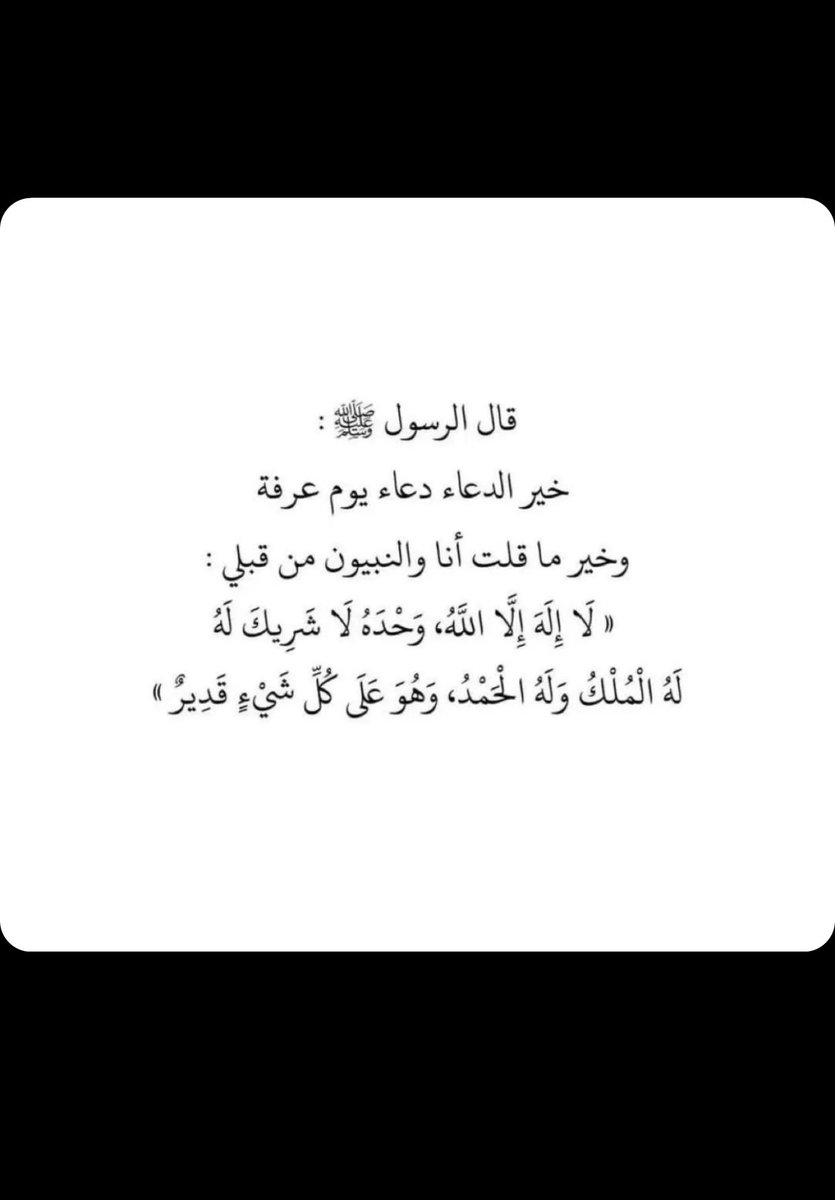 قال الرسول ﷺ :
خير الدعاء دعاء يوم عرفة
وخير ما قلت أنا والنبيون من قبلي :
« لَا إِلَهَ إِلَّا اللَّهُ، وَحْدَهُ لَا شَرِيكَ لَهُ
لَهُ الْمُلْكُ وَلَهُ الْحَمْدُ، وَهُوَ عَلَى كُلِّ شَيْءٍ قَدِيرٌ »